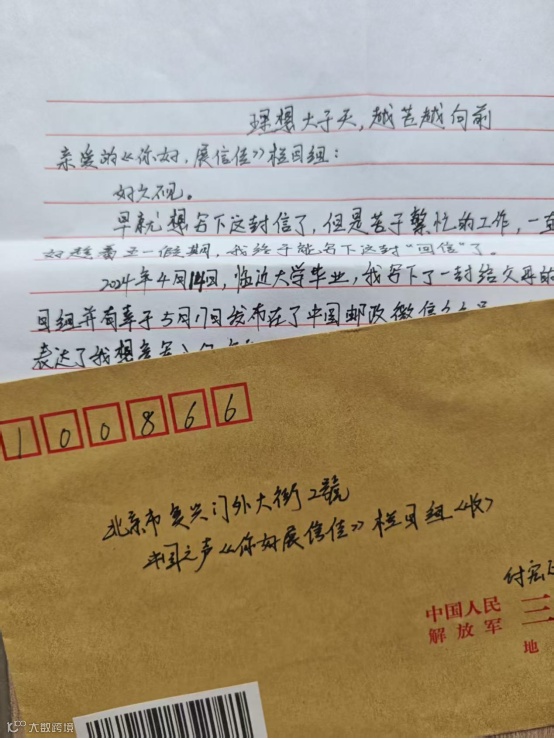 理想大于天，越苦越向前
亲爱的《你好，展信佳》栏目组：
好久不见。
早就想写下这封信了，但是苦于繁忙的工作，一直
好趁着五一假期，我终于能写下这封“回信”了。
2024年4月14日，临近大学毕业，我写下了一封给父母的
目组并有幸于5月17日发布在了中国邮政微信公众号
表达了我想
100866
北京市复兴门外大街2號
中国之声《你好展信佳》栏目组<收>
付宏
中国人民
解放军
三
地
大数跨境